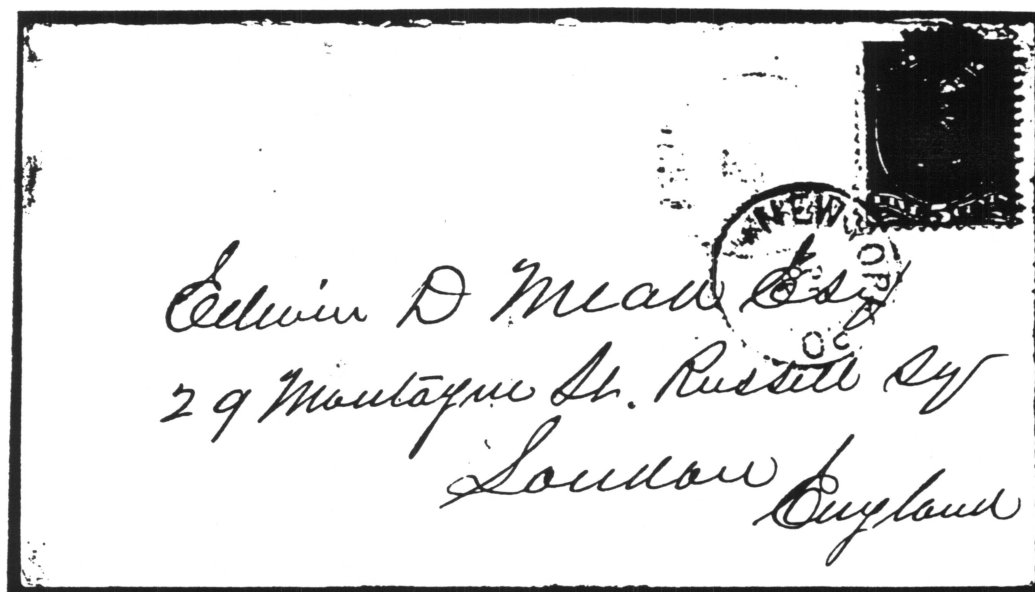 NEW YORK
Edwin D Mead Esq
29 Montague St. Russell Sq
London
England